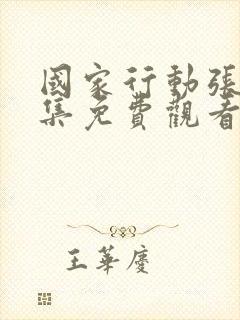 國家行動張
集免費觀看
王華慶